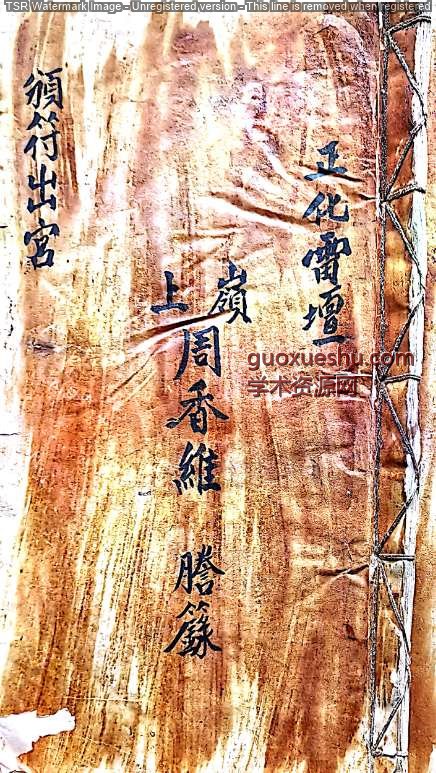 TSR Watermark Image - Unregistered version - This line is removed when registered
正化雷壇
嶺上周香維 謄籙
頒符出宮
guoxueshu.com
学术资源网